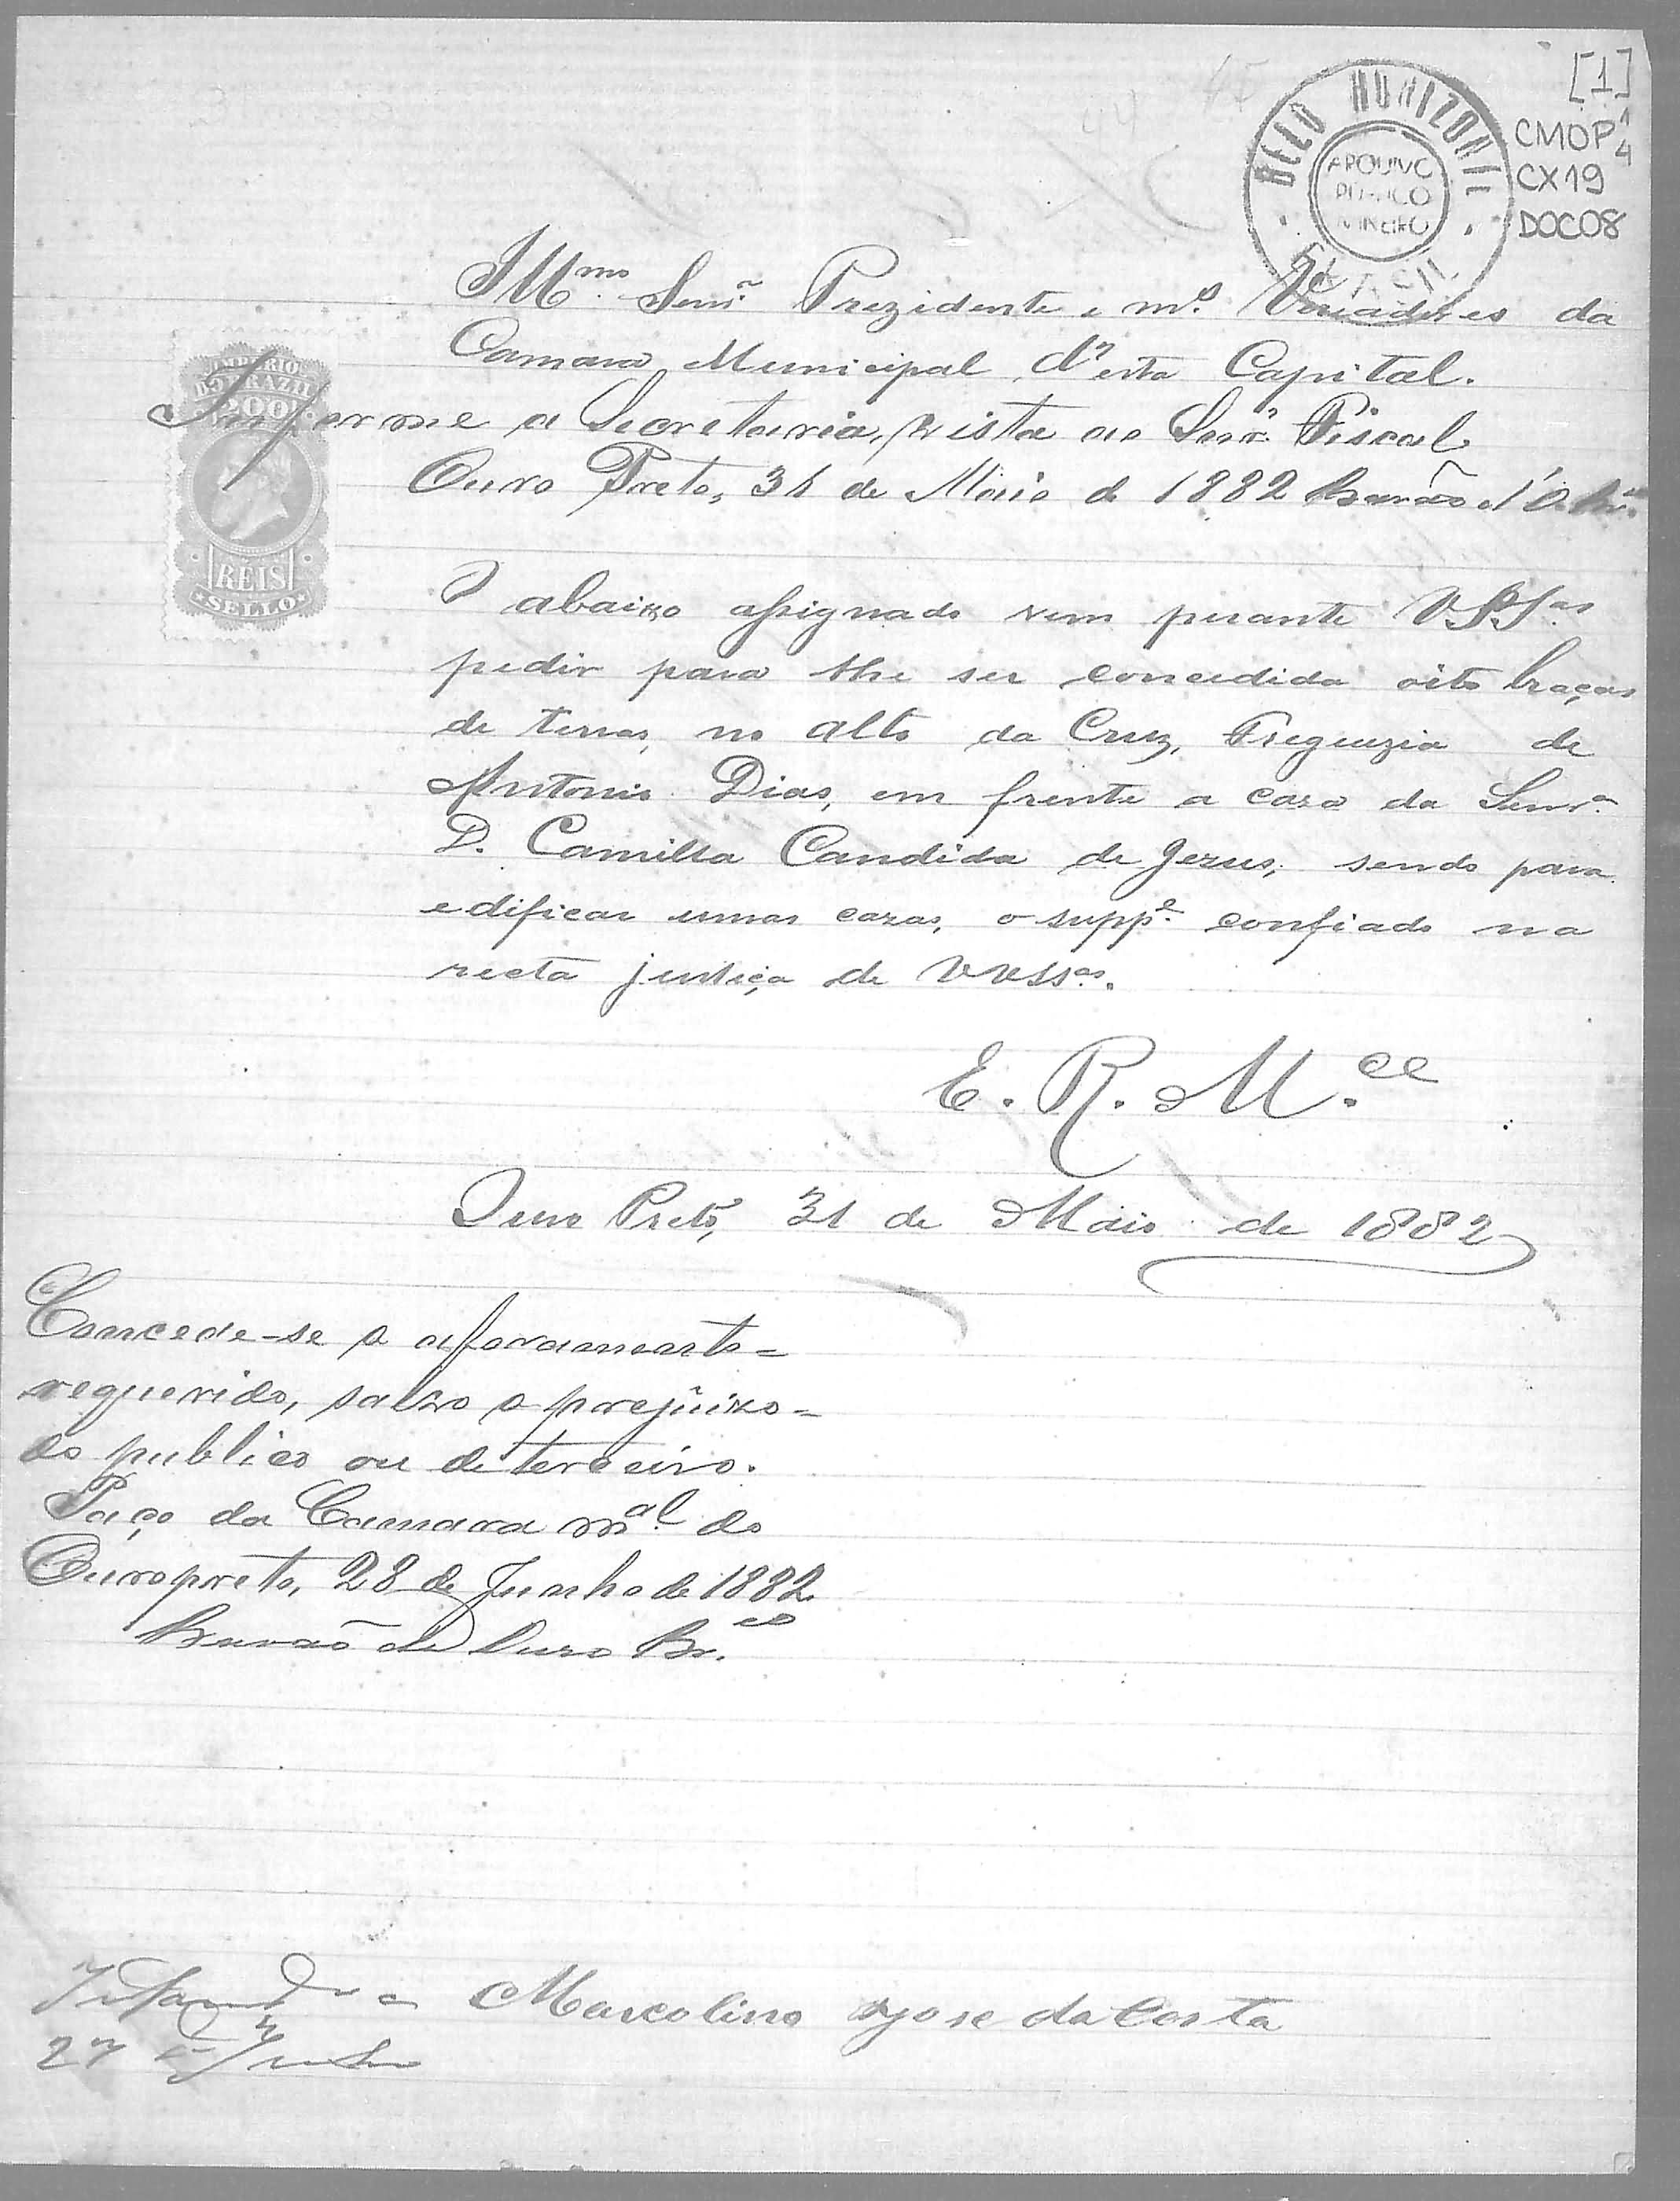 [1]
CMOP 1/4
CX19
DOC08
BELO HORIZONTE
ARQUIVO
PUBLICO
MINEIRO
BRASIL
IMPERIO
DO BRAZIL
200
REIS
SELLO
Illmo. Senr. Prezidente e m.s Vereadores da
Camara Municipal d'esta Capital.
Informe a Secretaria, vista ao Snr. Fiscal
Ouro Preto, 31 de Maio de 1882 Barão d'O. Br.co
O abaixo assignado vem perante VSSas
pedir para lhe ser concedida oito braças
de terras, no alto da Cruz, Freguezia de
Antonio Dias, em frente a caza da Senra.
D. Camilla Candida de Jezus, sendo para
edificar umas cazas, o suppe. confiado na
recta justiça de VVSSas.
E. R. M.ce
Ouro Preto, 31 de Maio de 1882
Concede-se o aforamento=
requerido, salvo o prejuizo=
do publico ou de terceiro.
Paço da Camara mal. do
Ouropreto, 28 de Junho de 1882.
Barão de Ouro Br.co
Marcolino Jose da Costa
27